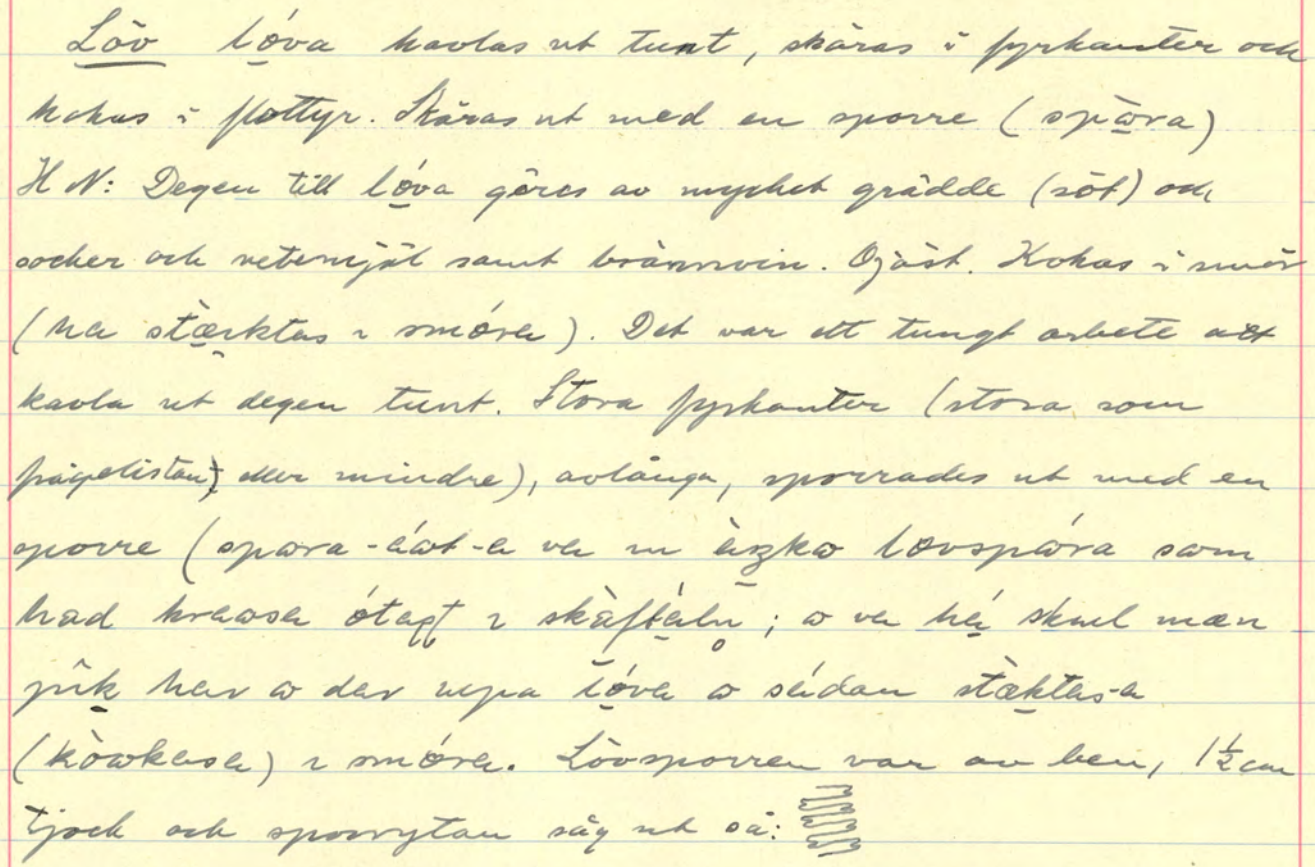 Löv lóva kavlas ut tunt, skäras i fyrkanter och
kokas i flottyr. Skäras ut med en sporre (spàra)
H N: Degen till lóva göres av mycket grädde (söt) och
socker och vetemjöl samt brännvin. Ojäst. Kokas i smör
(ha stæ̀rktas ɿ smǿra). Det var ett tungt arbete att
kavla ut degen tunt. Stora fyrkanter (stora som
eller mindre), avlånga, sporrades ut med en
sporre ( va løvspåra som
had ɿ ; va há skul mæn
hær å dær upa lǿva å sádan stæ̀ktas-a
(kòwkasa) ɿ smǿra. Lövsporren var av ben, 1½ cm
tjock och sporrytan såg ut så: